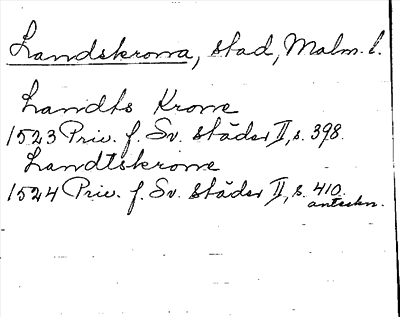 Landskrona, stad, Malm. l.
Landts Krone
1523 Priv. f. Sv. städer II, s. 398.
Landtskrone
1524 Priv. f. Sv. städer II, s. 410.
anteckn.